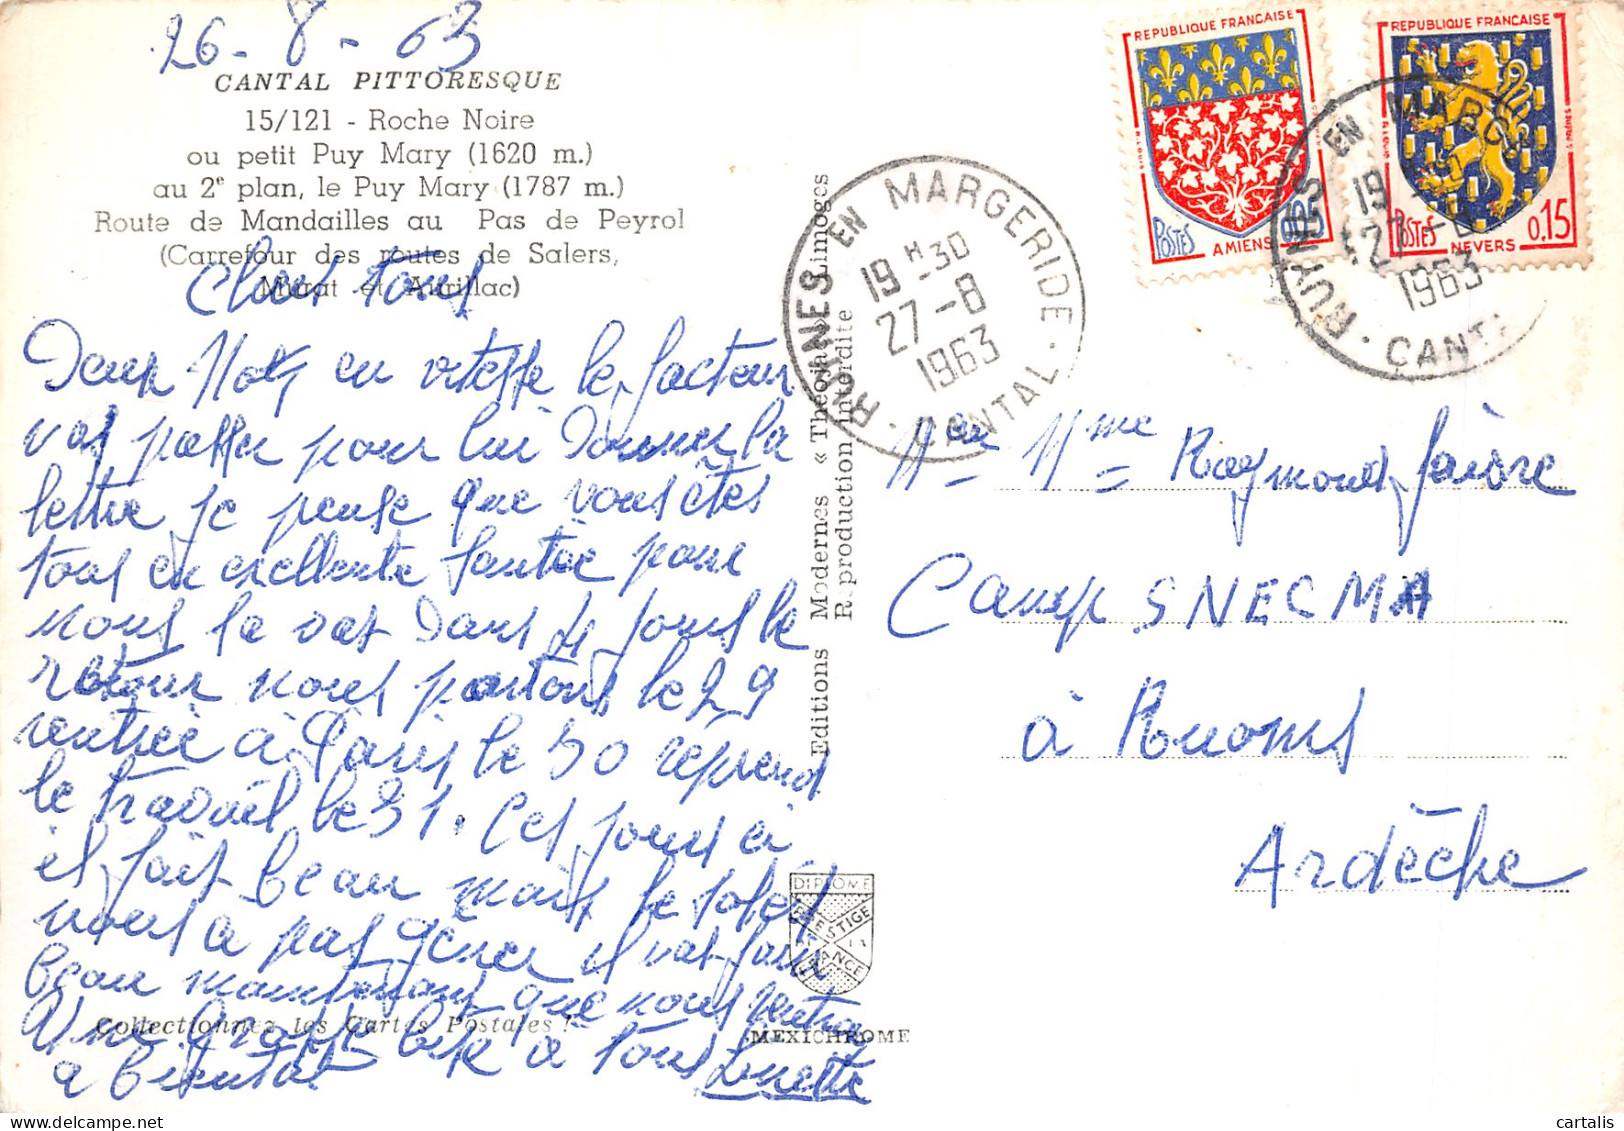 26-8-63
CANTAL PITTORESQUE
15/121 - Roche Noire
ou petit Puy Mary (1620 m.)
au 2e plan, le Puy Mary (1787 m.)
Route de Mandailles au Pas de Peyrol
(Carrefour des routes de Salers,
Murat et Aurillac)
Chers tous
Deux Mots en vitesse le facteur
vas passer pour lui Donner la
lettre je pense que vous êtes
tous en excellente santée pour
nous sa vas Dans 4 jours le
retour nous partons le 29
rentrée à Paris le 30 reprend
le travail le 31. Ces jours ci
il fait beau mais le soleil
nous a pas gêner il vas faire
beau maintenant que nous rentron
Une Grosse bise à tous
a bientot Linette
Collectionnez les Cartes Postales !
Editions Modernes « Théojac » Limoges
Reproduction interdite
DIPLOME
PRESTIGE
DE LA
FRANCE
MEXICHROME
RUYNES EN MARGERIDE
19H30
27-8
1963
CANTAL
REPUBLIQUE FRANÇAISE
POSTES
AMIENS
0,05
REPUBLIQUE FRANÇAISE
POSTES
NEVERS
0,15
RUYNES EN MARG
19
27-8
1963
CANT
Mr et Mme Raymond Faivre
Camp SNECMA
à Ruoms
Ardèche
cartalis